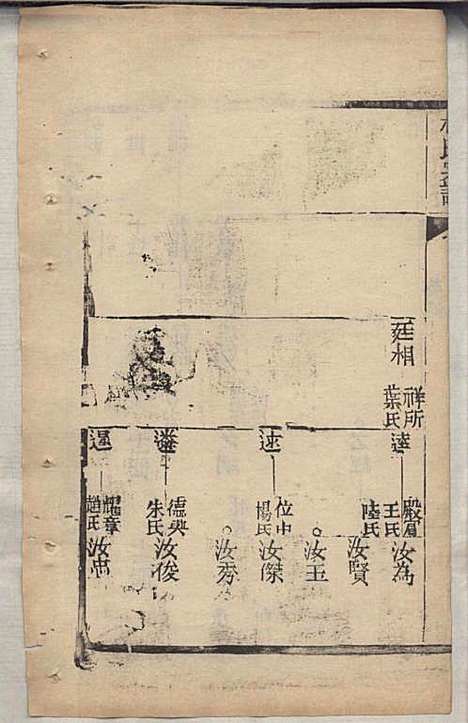 氏宗譜
廷相
祥所
葉氏
逵
殿眉
王氏
陸氏
汝為
汝賢
汝玉
述
位中
楊氏
汝傑
汝秀
遴
儒英
朱氏
汝俊
還
耀章
趙氏
汝忠